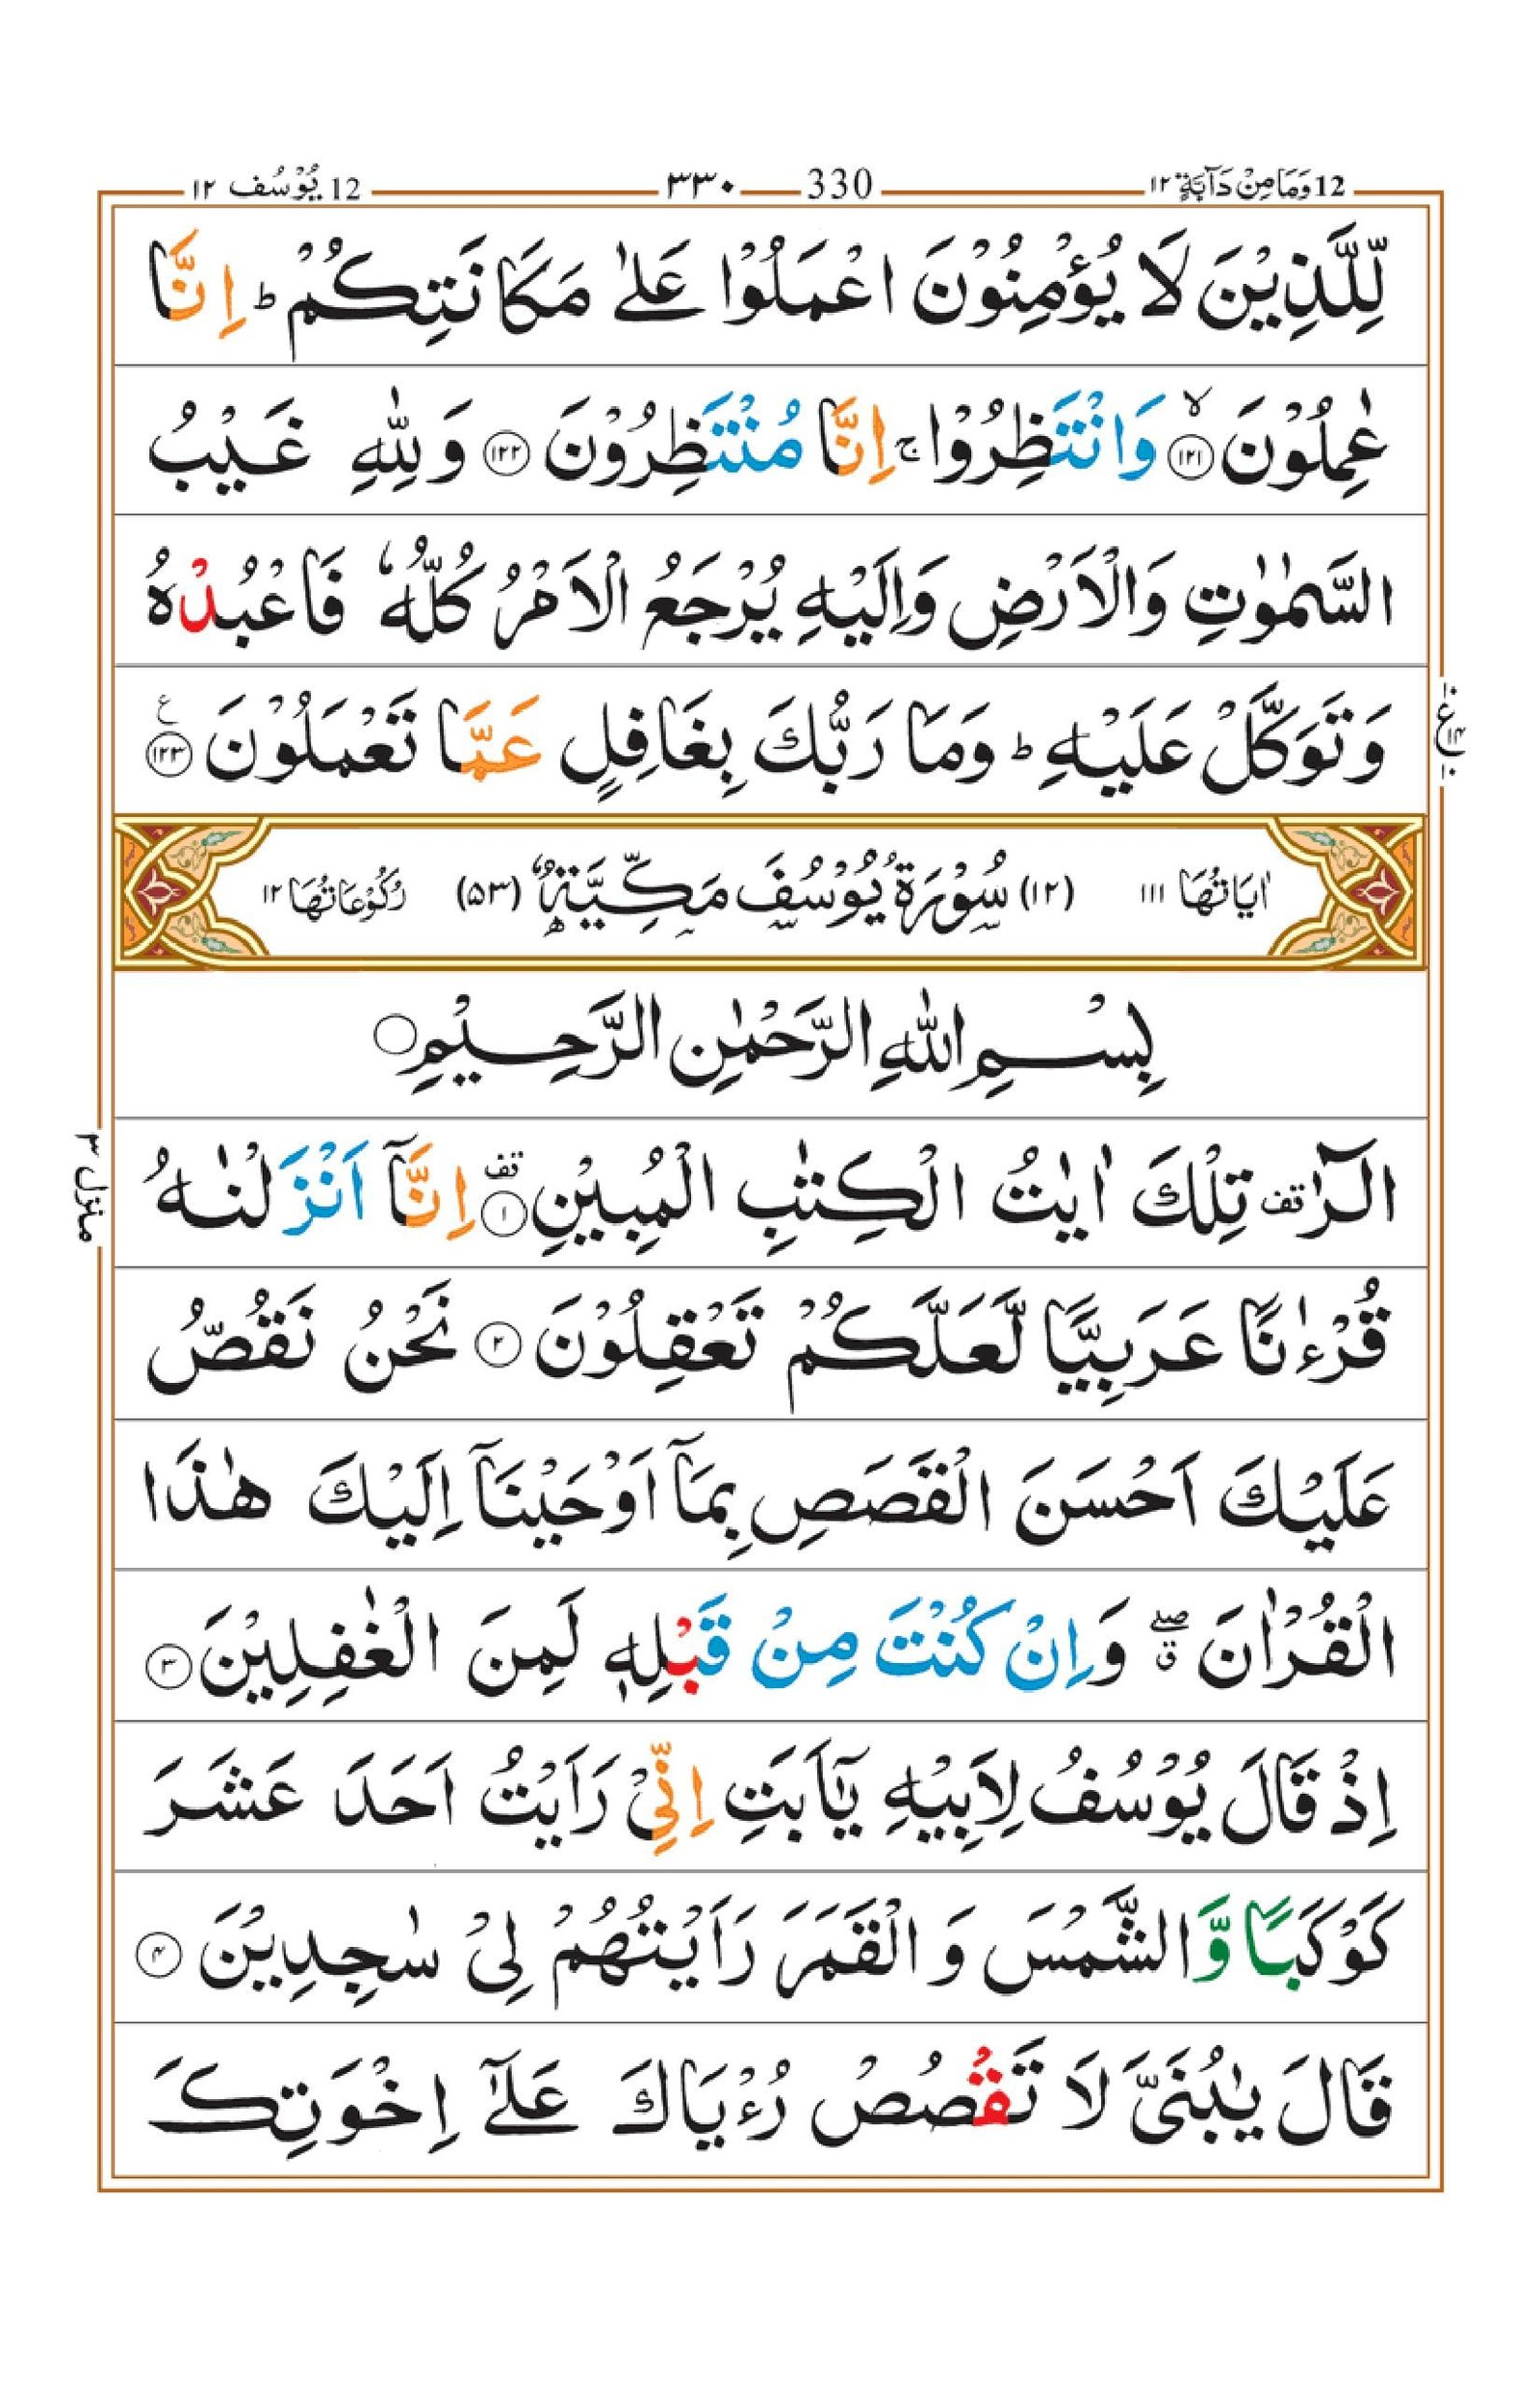 12 وَمَا مِنْ دَآبَّةٍ ١٢ 330 ٣٣٠ 12 يُوْسُف ١٢
لِّلَّذِيْنَ لَا يُؤْمِنُوْنَ اعْمَلُوْا عَلٰى مَكَانَتِكُمْ ؕ اِنَّا
عٰمِلُوْنَ ۙ﴿۱۲۱﴾ وَانْتَظِرُوْا ۚ اِنَّا مُنْتَظِرُوْنَ ﴿۱۲۲﴾ وَلِلّٰهِ غَيْبُ
السَّمٰوٰتِ وَالْاَرْضِ وَاِلَيْهِ يُرْجَعُ الْاَمْرُ كُلُّهٗ فَاعْبُدْهُ
وَتَوَكَّلْ عَلَيْهِ ؕ وَمَا رَبُّكَ بِغَافِلٍ عَمَّا تَعْمَلُوْنَ ﴿۱۲۳﴾ ع
اٰيَاتُهَا ١١١ (١٢) سُوْرَةُ يُوْسُفَ مَكِّيَّةٌ (٥٣) رُكُوْعَاتُهَا ١٢
بِسْمِ اللّٰهِ الرَّحْمٰنِ الرَّحِيْمِ
الٓرٰ تف تِلْكَ اٰيٰتُ الْكِتٰبِ الْمُبِيْنِ تف ﴿۱﴾ اِنَّآ اَنْزَلْنٰهُ
قُرْءٰنًا عَرَبِيًّا لَّعَلَّكُمْ تَعْقِلُوْنَ ﴿۲﴾ نَحْنُ نَقُصُّ
عَلَيْكَ اَحْسَنَ الْقَصَصِ بِمَآ اَوْحَيْنَآ اِلَيْكَ هٰذَا
الْقُرْاٰنَ ۖق وَاِنْ كُنْتَ مِنْ قَبْلِهٖ لَمِنَ الْغٰفِلِيْنَ ﴿۳﴾
اِذْ قَالَ يُوْسُفُ لِاَبِيْهِ يٰۤاَبَتِ اِنِّيْ رَاَيْتُ اَحَدَ عَشَرَ
كَوْكَبًا وَّالشَّمْسَ وَالْقَمَرَ رَاَيْتُهُمْ لِيْ سٰجِدِيْنَ ﴿۴﴾
قَالَ يٰبُنَيَّ لَا تَقْصُصْ رُءْيَاكَ عَلٰٓى اِخْوَتِكَ
منزل ٣